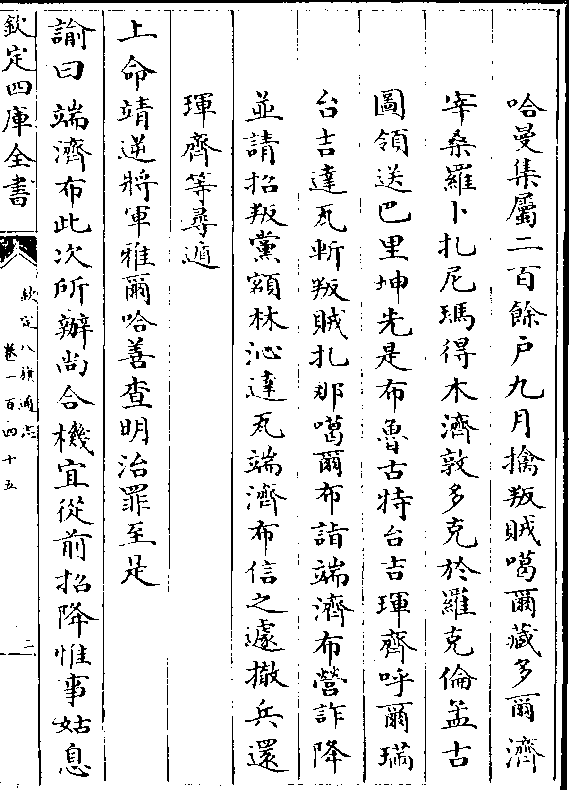 哈曼集屬二百餘户九月擒叛賊噶爾藏多爾濟
宰桑羅卜扎尼瑪得木濟敦多克於羅克倫孟古
圖領送巴里坤先是布魯古特台吉琿齊呼爾瑞
台吉達瓦斬叛賊扎那噶爾布詣端濟布營詐降
並請招叛黨額林沁達瓦端濟布信之遽撤兵還
琿齊等尋遁
上命靖逆將軍雅爾哈善查明治罪至是
諭曰端濟布此次所辦尚合機宜從前招降惟事姑息
欽定四庫全書
欽定八旗通志
卷一百四十五
二